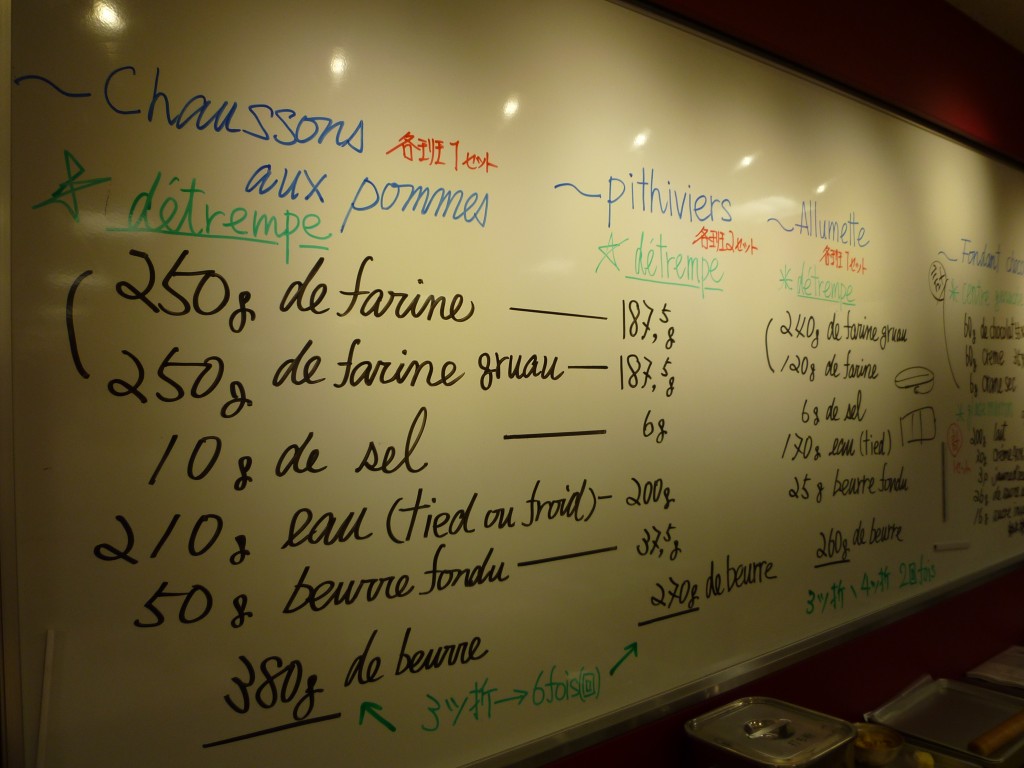 ~ Chaussons
aux pommes
各班1セット
☆ détrempe
250g de farine
250g de farine gruau
10g de sel
210g eau (tied ou froid)
50g beurre fondu
380g de beurre
3ツ折→6fois(回)
~ pithiviers
各班2セット
☆ détrempe
187,5g
187,5g
6g
200g
37,5g
270g de beurre
~ Allumette
各班1セット
* détrempe
240g de farine gruau
120g de farine
6g de sel
170g eau (tied)
25g beurre fondu
260g de beurre
3ツ折 \ 4ツ折 2回fois
~ Fondant
60g de chocolat
60g crème
6g
200g lait